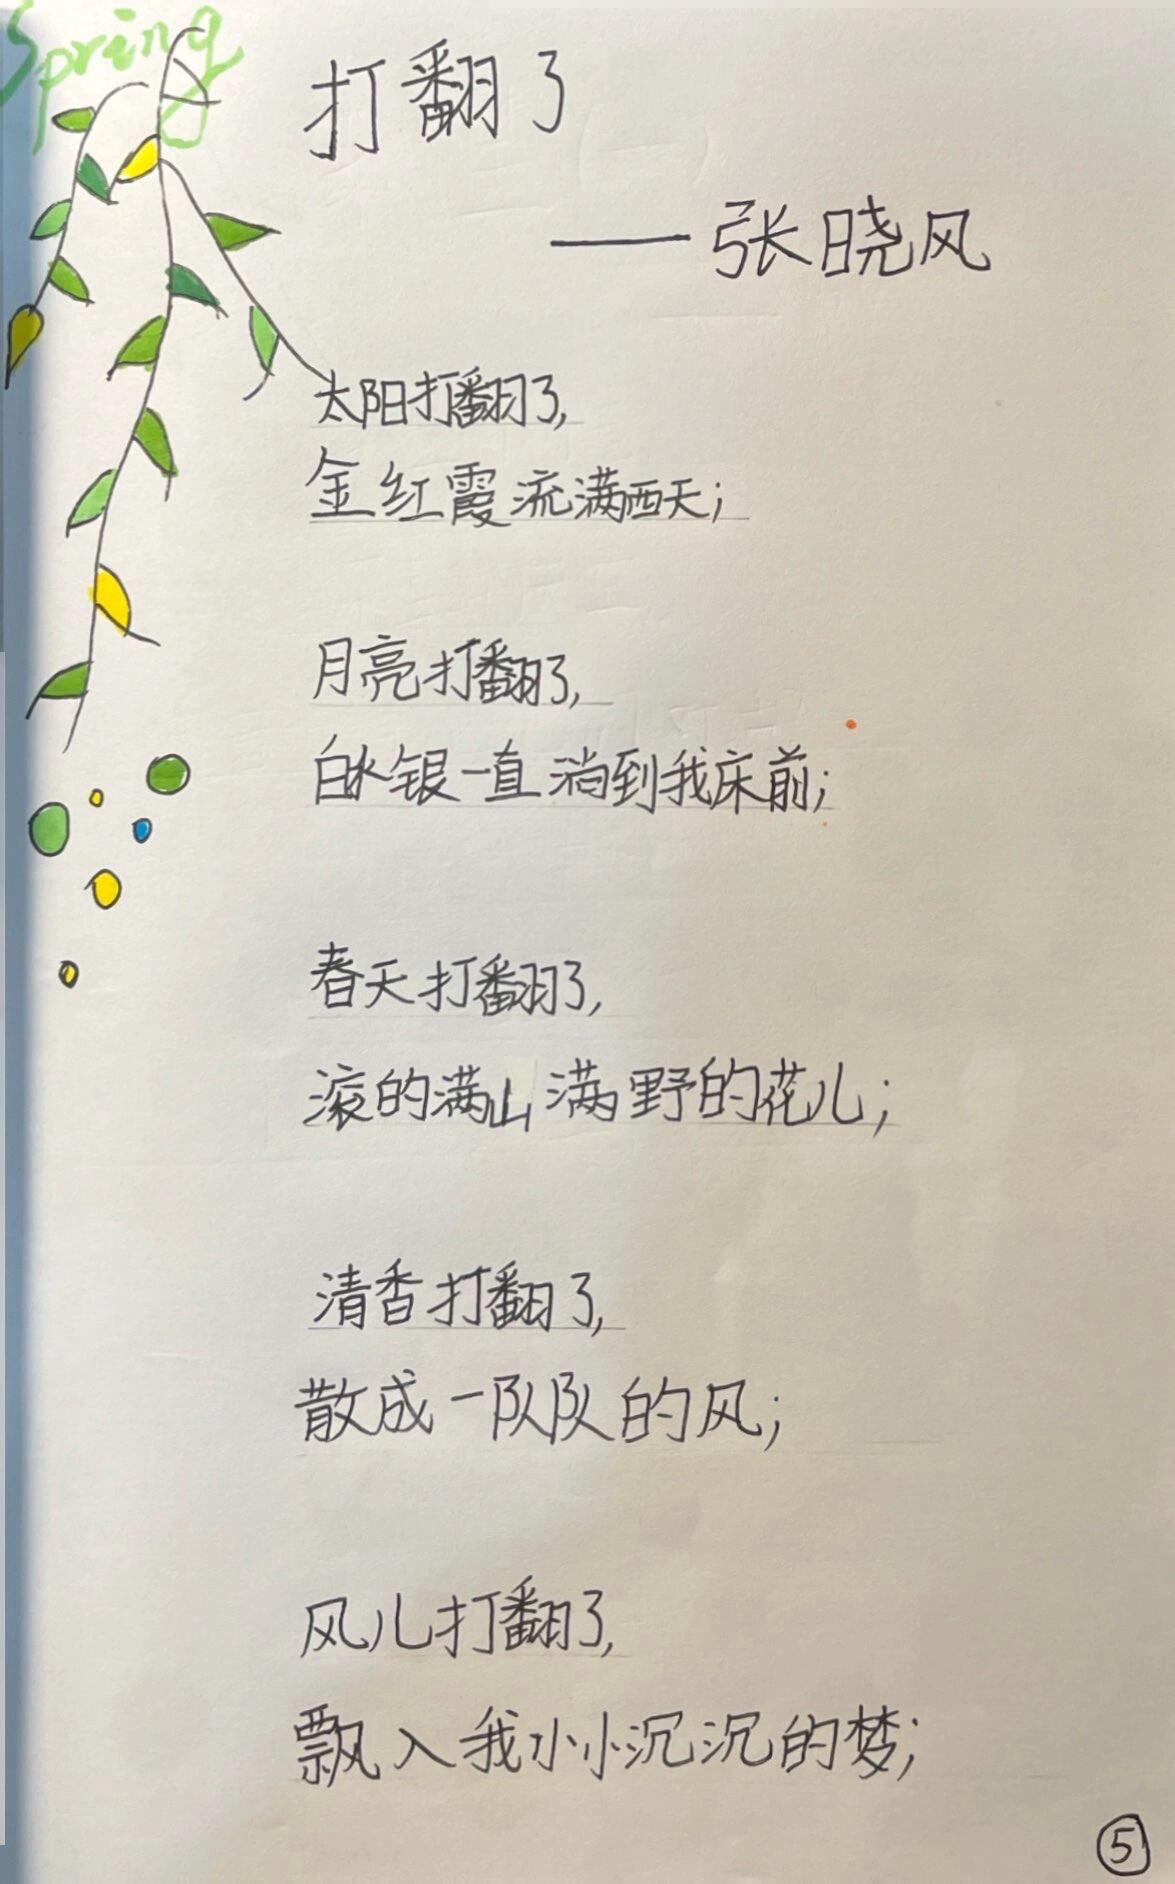 Spring
打翻了
——张晓风
太阳打翻了，
金红霞流满西天；
月亮打翻了，
白水银一直淌到我床前；
春天打翻了，
滚的满山满野的花儿；
清香打翻了，
散成一队队的风；
风儿打翻了，
飘入我小小沉沉的梦；
⑤